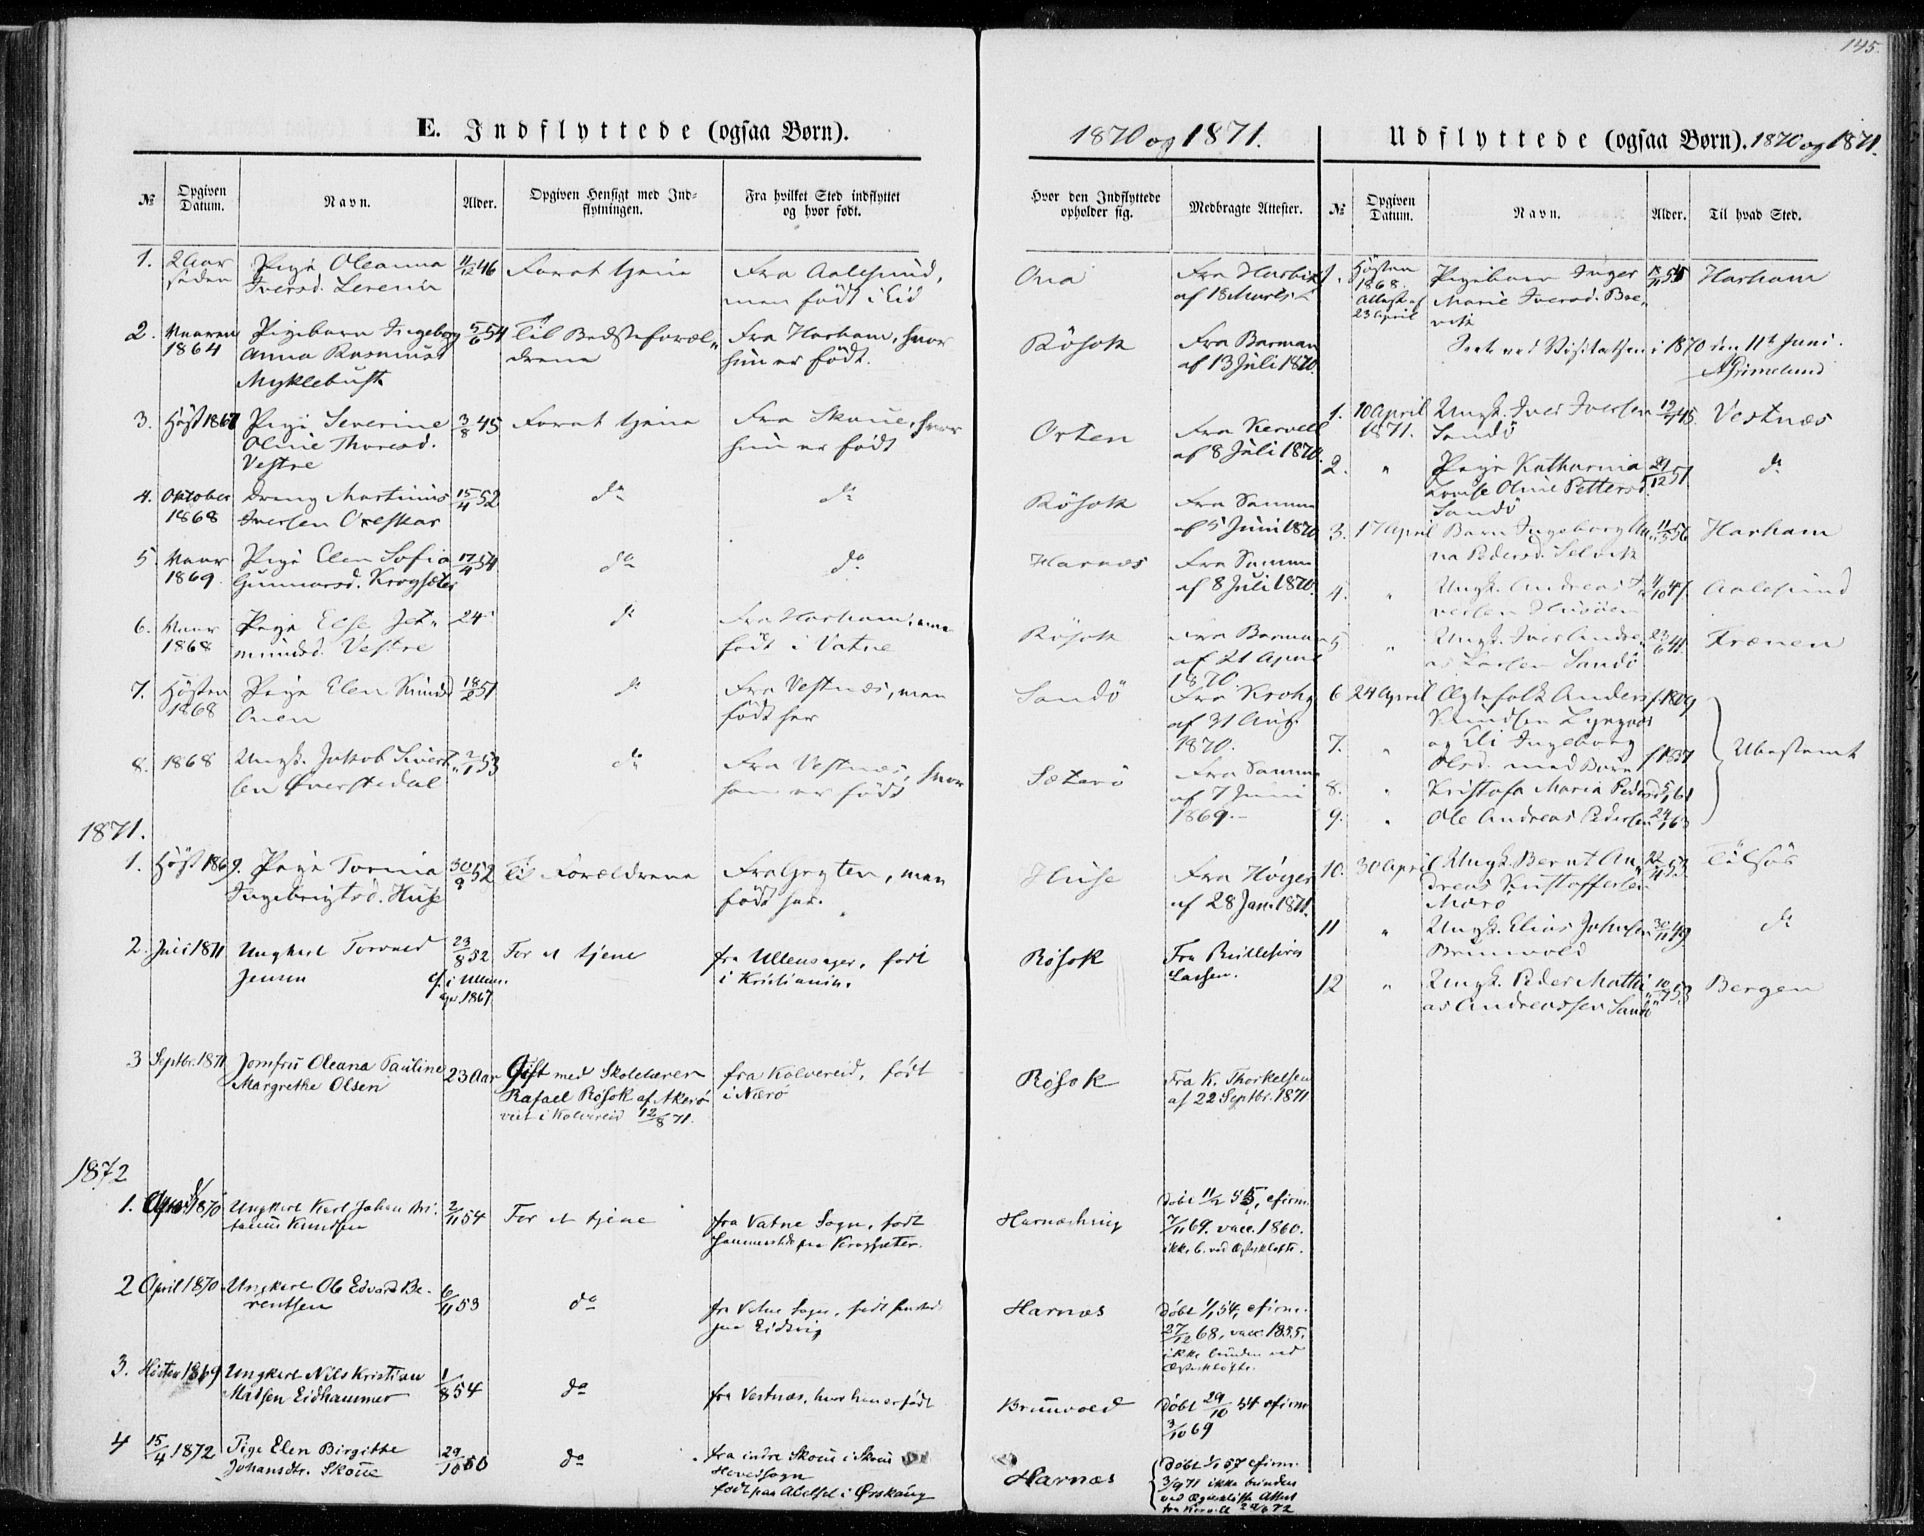 145.
E. Indflyttede (ogsaa Børn).
1870 og 1871.
Udflyttede (ogsaa Børn). 1870 og 1871.
№ Opgiven Datum. Navn. Alder. Opgiven Hensigt med Indflytningen. Fra hvilket Sted indflyttet og hvor født.
Hvor den Indflyttede opholder sig. Medbragte Attester.
№ Opgiven Datum. Navn. Alder. Til hvad Sted.
1. 2 Aar siden Pige Oleanna Iversd. 11/12 46 For at tjene Fra Aalesund, men født i Eid
Ona af 18 Marts
2. Vaaren 1864 Pigebarn Ingeborg Anna Rasmusd Myklebust 5/6 54 Til Bedsteforældrene Fra Harham, hvor hun er født.
Rösok Fra Barman af 13 Juli 1870.
3. Høst 1867 Pige Severine Oline Thoresd. Vestre 3/8 45 For at tjene Fra Skoue, hvor hun er født
Orten Fra Kervell af 8 Juli 1870.
4. Oktober 1868 Dreng Martinus Iversen Oxeskar 15/4 52 do do
Rösok Fra Samme af 5 Juni 1870
5 Vaar 1869 Pige Elen Sofia Gunnarsd. Krogsæter 17/4 54 do do
Harnæs Fra Samme af 8 Juli 1870.
6. Vaar 1868 Pige Else Jetmundsd. Vestre 24 do Fra Harham, men født i Vatne
Rösok Fra Barman af 21 April 1870
7. Høsten 1868 Pige Elen Knudsd Onen 18/2 51 do Fra Vestnæs, men født her
Sandö Fra Krohg af 31 Aug. 1870.
8. 1868 Ungk. Jakob Sivertsen Øverstedal 2/1 53 do Fra Vestnæs, hvor han er født
Sæterö Fra Samme af 7 Juni 1869.
1871.
1. Høst 1869. Pige Torina Ingebrigtsd. Huse 30/9 52 Til Forældrene Fra Grytten, men født her.
Huse Fra Høyer af 28 Jan. 1871.
2. Juli 1871 Ungkarl Torvald Jensen 23/8 52 cf. i Ullensager 1867 For at tjene fra Ullensager, født i Kristiania.
Røsok Fra
3 Septbr. 1871 Jomfru Oleana Pauline Margrethe Olsen 23 Aar Gift med Skolelærer Rafael Røsok af Akerø viet i Kolvereid 12/8 71. fra Kolvereid, født i Nærø
Røsok Fra K. Thorkelsen af 22 Septbr. 1871
1872
1. April 1870 Ungkarl Karl Johan Knudsen 2/11 54 For at tjene fra Vatne Sogn, født sammesteds paa Krogsæter.
døbt 11/2 55, cfirm. 7/11 69. vacc. 1860.
2 April 1870 Ungkarl Ole Edvard Berentsen 6/11 53 do fra Vatne Sogn, født sammesteds paa Eidsvig
Harnæs Døbt 1/1 54, cfirm. 27/12 68, vacc. 1855, ikke bunden ved
3. Høsten 1869 Ungkarl Nils Kristian Matsen Eidhammer 1/8 54 do fra Vestnæs, hvor han er født
Brunvold Døbt 29/10 54 cfirm 3/10 69
4 15/4 1872 Pige Elen Birgitte Johansdtr. Skoue 29/10 56 do fra indre Skoue i Skoue Hovedsogn født paa Abelsæt i Ørskoug
Harnæs Døbt 1/1 57 cfirm. 3/9 71 ikke bunden ved Attest fra Kervell 72
1. Høsten 1868 Attest af 23 April Pigebarn Inger Marie Iversd. 55 Harham
Seet ved Visitatsen i 1870 den 11te Juni.
AGrimelund
1. 10 April 1871. Ungk. Iver Iversen Sandö 45 Vestnæs
2. " Pige Katharina Lovise Oline Pettersd. Sandö 21/12 51 do
3. 17 April Barn Ingeborg Anna Pedersd. 11/5 56 Harham
4. " Ungk. Andreas Husöen 47. Aalesund
5 " Ungk. Iver Andreas Larsen Sandö 41. Frænen
6 24 April Ægtefolk Anders Knudsen f. 1809
7. " og Eli Ingeborg Olsd. med Børn f. 1837 Ubestemt
8. " Kristofa Maria Pedersd 61
9. " Ole Andreas Pedersen 63
10. 30 April Ungk. Bernt Andreas Kristoffersen 53
11 " Ungk. Elias Johnsen Brunvold 49 do
12 " Ungk. Peder Mattias Andreassen Sandö 10/7 53 Bergen